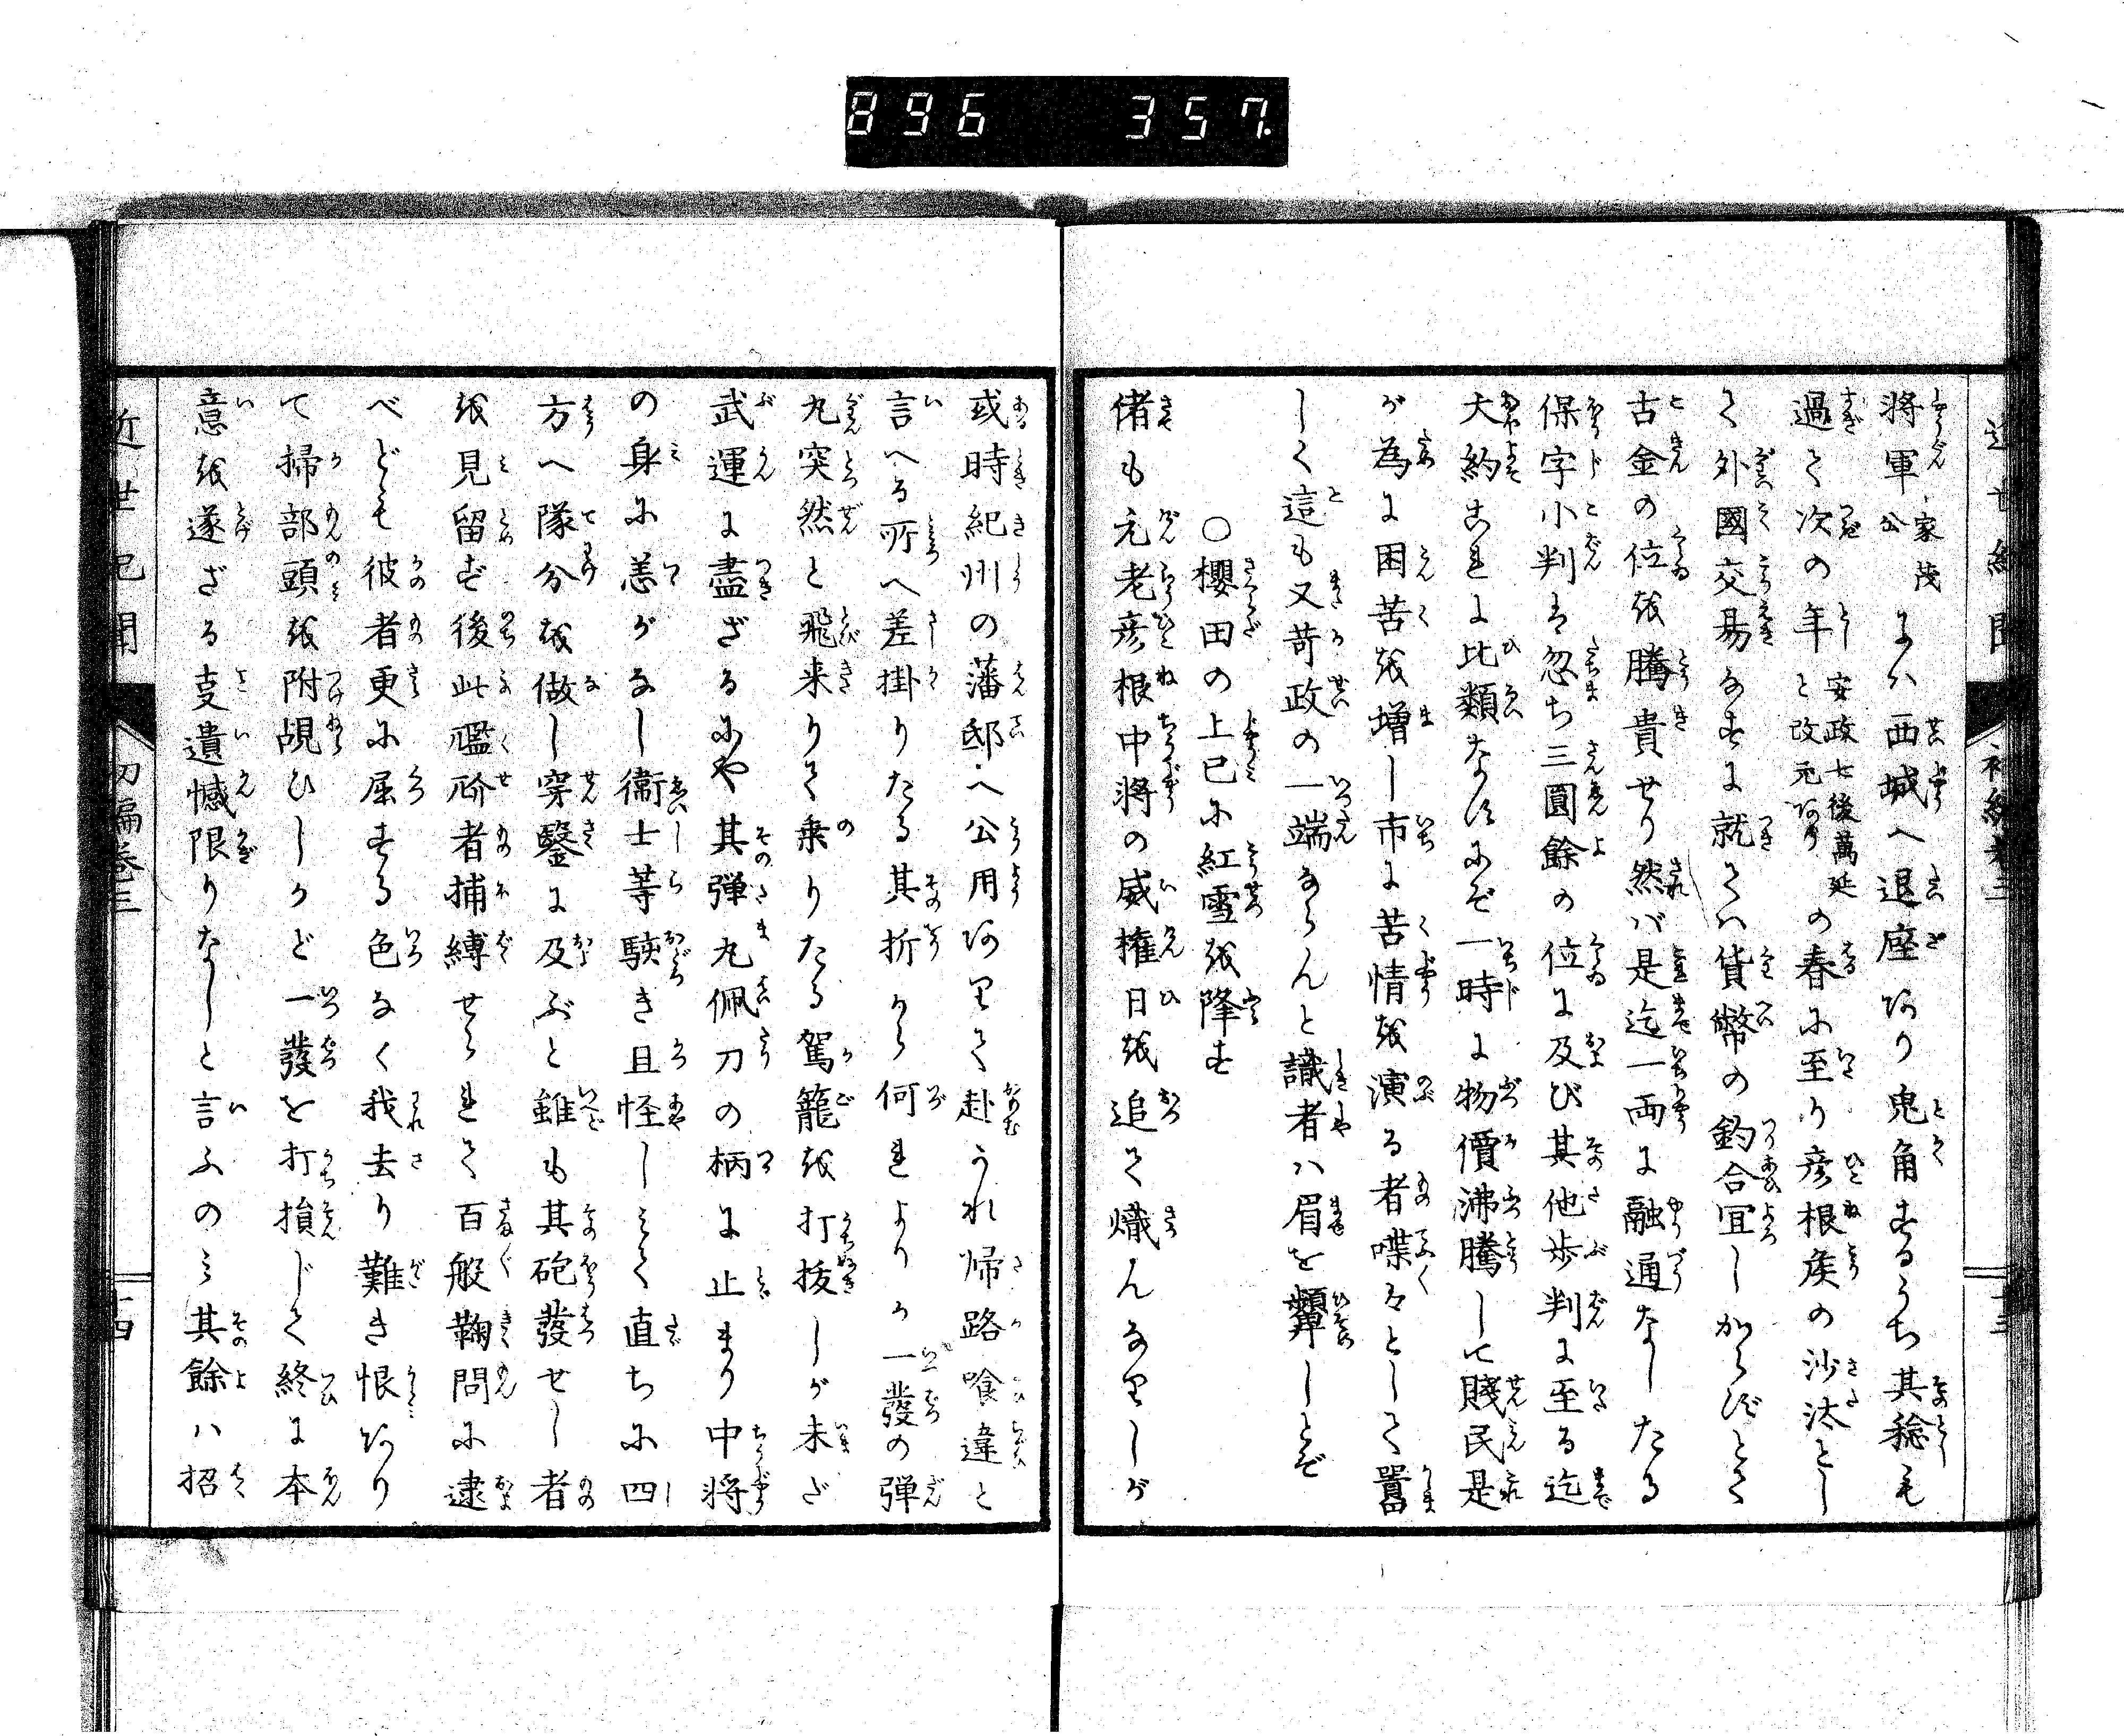 896 357.
近世紀聞 初編巻三 十三
将軍公家茂公にハ西城へ退座あり兎角するうち其稔も
過て次の年安政七後萬延と改元ありの春に至り彦根侯の沙汰とし
て外國交易なすに就てハ貨幣の釣合冝しからずとて
古金の位を騰貴せり然バ是迄一両に融通なしたる
保字小判ハ忽ち三圓餘の位に及び其他歩判に至る迄
大約これに比類なすにぞ一時に物價沸騰して賤民是
が為に困苦を増し市に苦情を演る者喋々として囂
しく這も又苛政の一端ならんと識者ハ眉を顰しとぞ
○櫻田の上巳に紅雪を降す
偖も元老彦根中将の威権日を追て熾んなりしが
或時紀州の藩邸へ公用ありて赴かれ帰路喰違と
言へる所へ差掛りたる其折から何れよりか一發の弾
丸突然と飛来りて乗りたる駕籠を打抜しが未だ
武運に盡ざるにや其弾丸佩刀の柄に止まり中将
の身に恙がなし衛士等駭き且怪しみて直ちに四
方へ隊分を做し穿鑿に及ぶと雖も其砲發せし者
を見留ず後此𠎝䘙者捕縛せられて百般鞠問に逮
べども彼者更に屈する色なく我去り難き恨あり
て掃部頭を附覘ひしかど一發を打損じて終に本
意を遂ざる事遺憾限りなしと言ふのミ其餘ハ招
近世紀聞 初編巻三 十四